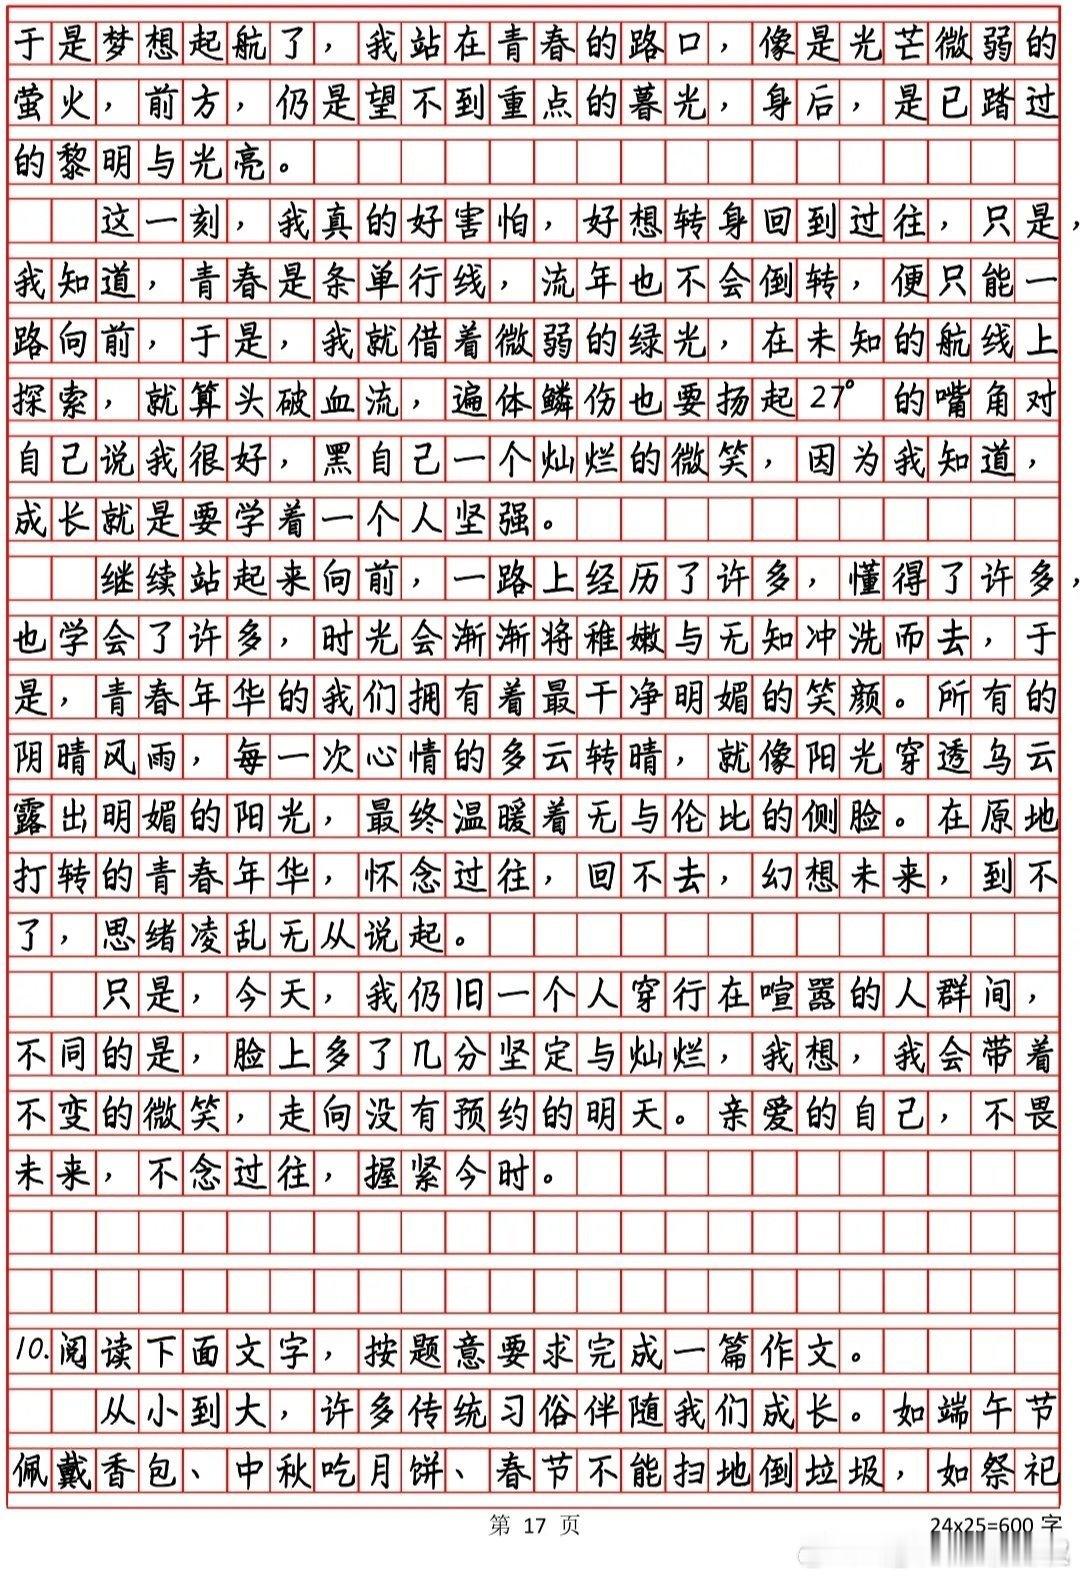 于是梦想起航了，我站在青春的路口，像是光芒微弱的
萤火，前方，仍是望不到重点的暮光，身后，是已踏过
的黎明与光亮。
这一刻，我真的好害怕，好想转身回到过往，只是，
我知道，青春是条单行线，流年也不会倒转，便只能一
路向前，于是，我就借着微弱的绿光，在未知的航线上
探索，就算头破血流，遍体鳞伤也要扬起27°的嘴角对
自己说我很好，黑自己一个灿烂的微笑，因为我知道，
成长就是要学着一个人坚强。
继续站起来向前，一路上经历了许多，懂得了许多，
也学会了许多，时光会渐渐将稚嫩与无知冲洗而去，于
是，青春年华的我们拥有着最干净明媚的笑颜。所有的
阴晴风雨，每一次心情的多云转晴，就像阳光穿透乌云
露出明媚的阳光，最终温暖着无与伦比的侧脸。在原地
打转的青春年华，怀念过往，回不去，幻想未来，到不
了，思绪凌乱无从说起。
只是，今天，我仍旧一个人穿行在喧嚣的人群间，
不同的是，脸上多了几分坚定与灿烂，我想，我会带着
不变的微笑，走向没有预约的明天。亲爱的自己，不畏
未来，不念过往，握紧今时。
10.阅读下面文字，按题意要求完成一篇作文。
从小到大，许多传统习俗伴随我们成长。如端午节
佩戴香包、中秋吃月饼、春节不能扫地倒垃圾，如祭祀
第 17 页
24x25=600 字